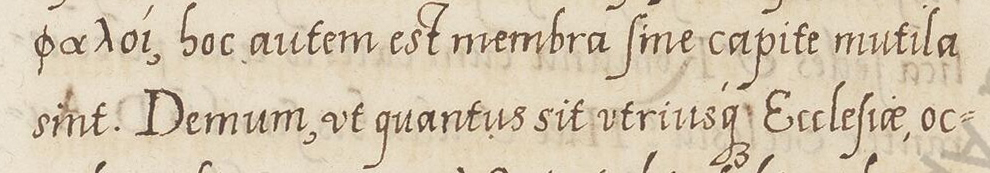 φαλοί, hoc autem est membra ſine capite mutila
sint. Demum, vt quantus sit vtriusq́ꝫ Eccleſiæ, oc=